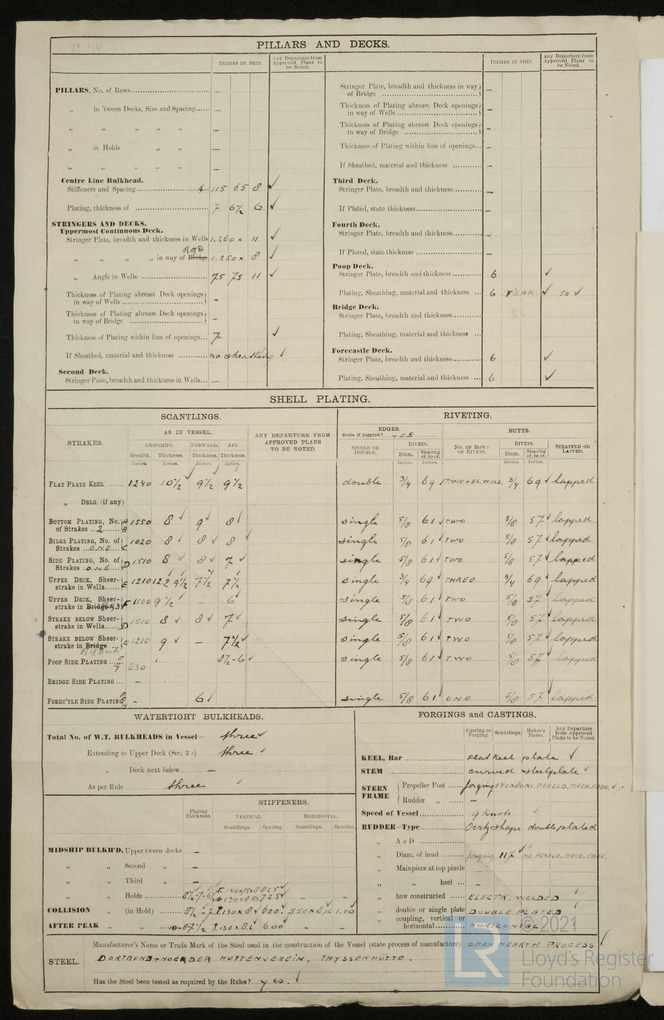 PILLARS AND DECKS.
INCHES IN SHIP.
Any Departure from Approved Plans to be Noted.
PILLARS, No. of Rows –
„ in 'tween Decks, Size and Spacing –
„ „ „ „ „ –
„ in Holds „ „ –
„ „ „ „ –
Centre Line Bulkhead.
Stiffeners and Spacing 115 65 8 ✓
Plating, thickness of 7 6½ 6 ✓
STRINGERS AND DECKS.
Uppermost Continuous Deck.
Stringer Plate, breadth and thickness in Wells 1,260 x 11 ✓
„ „ „ „ in way of Bridge 1,250 x 8 ✓
„ Angle in Wells 75 75 11 ✓
Thickness of Plating abreast Deck openings in way of Wells –
Thickness of Plating abreast Deck openings in way of Bridge –
Thickness of Plating within line of openings 7 ✓
If Sheathed, material and thickness no sheathing ✓
Second Deck.
Stringer Plate, breadth and thickness in Wells –
INCHES IN SHIP.
Any Departure from Approved Plans to be Noted.
Stringer Plate, breadth and thickness in way of Bridge –
Thickness of Plating abreast Deck openings in way of Wells –
Thickness of Plating abreast Deck openings in way of Bridge –
Thickness of Plating within line of openings –
If Sheathed, material and thickness –
Third Deck.
Stringer Plate, breadth and thickness –
If Plated, state thickness –
Fourth Deck.
Stringer Plate, breadth and thickness –
If Plated, state thickness –
Poop Deck.
Stringer Plate, breadth and thickness 6 ✓
Plating, Sheathing, material and thickness 6 TEAK ✓ 50 ✓
Bridge Deck.
Stringer Plate, breadth and thickness –
Plating, Sheathing, material and thickness –
Forecastle Deck.
Stringer Plate, breadth and thickness 6 ✓
Plating, Sheathing, material and thickness 6 ✓
SHELL PLATING.
SCANTLINGS.
RIVETING.
STRAKES.
AS IN VESSEL.
AMIDSHIPS. FORWARD. AFT.
Breadth. Thickness. Thickness. Thickness.
Inches. Inches. Inches. Inches.
ANY DEPARTURE FROM APPROVED PLANS TO BE NOTED.
EDGES.
State if joggled?
SINGLE OR DOUBLE.
RIVETS.
Diam. Spacing cr. to cr.
Inches. Inches.
BUTTS.
No. of Rows of Rivets.
RIVETS.
Diam. Spacing cr. to cr.
Inches. Inches.
STRAPPED OR LAPPED.
FLAT PLATE KEEL 1240 10½ 9½ 9½ double ¾ 69 ¾ 69 ✓ lapped
„ DBLG. (if any)
BOTTOM PLATING, No. of Strakes 2 1550 8 9 8 single 5/8 61 ✓ TWO 5/8 57 ✓ lapped
BILGE PLATING, No. of Strakes ONE 1020 8 8 8 single 5/8 61 ✓ TWO 5/8 57 ✓ lapped
SIDE PLATING, No. of Strakes ONE 1510 8 8 7 single 5/8 61 ✓ TWO 5/8 57 ✓ lapped
UPPER DECK, Sheerstrake in Wells 1210 7½ 7½ single ¾ 69 ✓ THREE ¾ 69 ✓ lapped
UPPER DECK, Sheerstrake in Bridge 1100 9½ – 6 single 5/8 61 ✓ TWO 5/8 57 lapped
STRAKE BELOW Sheerstrake in Wells 1510 8 8 7 single 5/8 61 ✓ TWO 5/8 57 ✓ lapped
STRAKE BELOW Sheerstrake in Bridge 1210 9 – 7½ single 5/8 61 ✓ TWO 5/8 57 ✓ lapped
POOP SIDE PLATING 830 8½-6 single 5/8 61 ✓ TWO 5/8 57 lapped
BRIDGE SIDE PLATING –
FORE'C'TLE SIDE PLATING – 6 single 5/8 61 ✓ ONE 5/8 57 lapped
WATERTIGHT BULKHEADS.
Total No. of W.T. BULKHEADS in Vessel— three ✓
Extending to Upper Deck three ✓
„ Deck next below –
As per Rule three ✓
Plating Thickness.
STIFFENERS.
VERTICAL. HORIZONTAL.
Scantlings. Spacing. Scantlings. Spacing.
MIDSHIP BULKH'D, Upper tween decks –
„ „ Second „ –
„ „ Third „ –
„ „ Holds
COLLISION „ (in Hold)
AFTER PEAK „ „ 600 –
FORGINGS and CASTINGS.
Casting or Forging. Scantlings. Maker's Name. Any Departure from Approved Plans to be Noted.
KEEL, Bar flat keel plate ✓
STEM curved steelplate ✓
STERN FRAME Propeller Post forging
Rudder „ –
Speed of Vessel 9 knots
RUDDER—Type Oertzshape doubleplated
„ A x D
„ Diam. of head forging 117
„ Mainpiece at top pintle
„ „ heel –
„ how constructed ELECTR. WELDED
„ double or single plate DOUBLE PLATED
„ coupling, vertical or horizontal HORIZONTAL
STEEL.
Manufacturer's Name or Trade Mark of the Steel used in the construction of the Vessel (state process of manufacture) OPEN HEARTH PROCESS
DORTMUND-HOERDER HUTTENVEREIN, THYSSENHÜTTE.
Has the Steel been tested as required by the Rules? yes. ✓
© 2021
LR
Lloyd's Register
Foundation